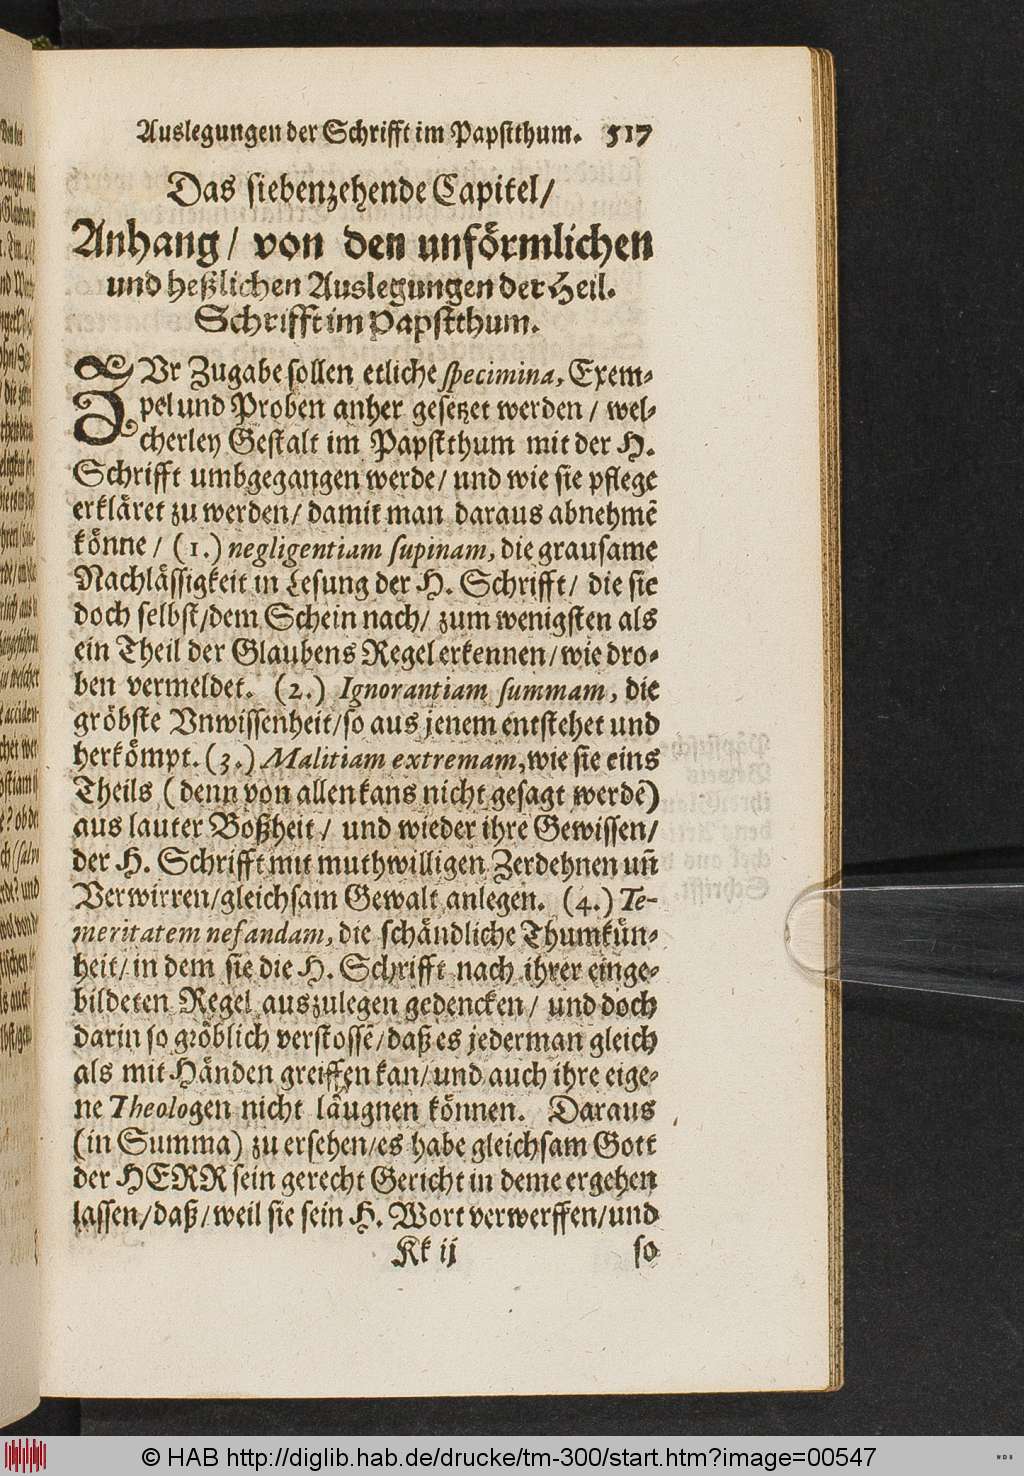 Auslegungen der Schrifft im Papstthum. 517
Das siebenzehende Capitel/
Anhang / von den unförmlichen
und heßlichen Auslegungen der Heil.
Schrifft im Papstthum.
ZVr Zugabe sollen etliche specimina, Exem-
pel und Proben anher gesetzet werden / wel-
cherley Gestalt im Papstthum mit der H.
Schrifft umbgegangen werde/ und wie sie pflege
erkläret zu werden/ damit man daraus abnehmē
könne / (1.) negligentiam supinam, die grausame
Nachlässigkeit in Lesung der H. Schrifft/ die sie
doch selbst/dem Schein nach/ zum wenigsten als
ein Theil der Glaubens Regel erkennen/wie dro-
ben vermeldet. (2.) Ignorantiam summam, die
gröbste Vnwissenheit/so aus jenem entstehet und
herkömpt. (3.) Malitiam extremam,wie sie eins
Theils (denn von allen kans nicht gesagt werdē)
aus lauter Boßheit / und wieder ihre Gewissen/
der H. Schrifft mit muthwilligen Zerdehnen uñ
Verwirren/gleichsam Gewalt anlegen. (4.) Te-
meritatem nefandam, die schändliche Thumkün-
heit/ in dem sie die H. Schrifft nach ihrer einge-
bildeten Regel auszulegen gedencken/ und doch
darin so gröblich verstossē/daß es jederman gleich
als mit Händen greiffen kan/ und auch ihre eige-
ne Theologen nicht läugnen können. Daraus
(in Summa) zu ersehen/es habe gleichsam Gott
der HERR sein gerecht Gericht in deme ergehen
lassen/daß/weil sie sein H. Wort verwerffen/und
Kk ij so
© HAB http://diglib.hab.de/drucke/tm-300/start.htm?image=00547